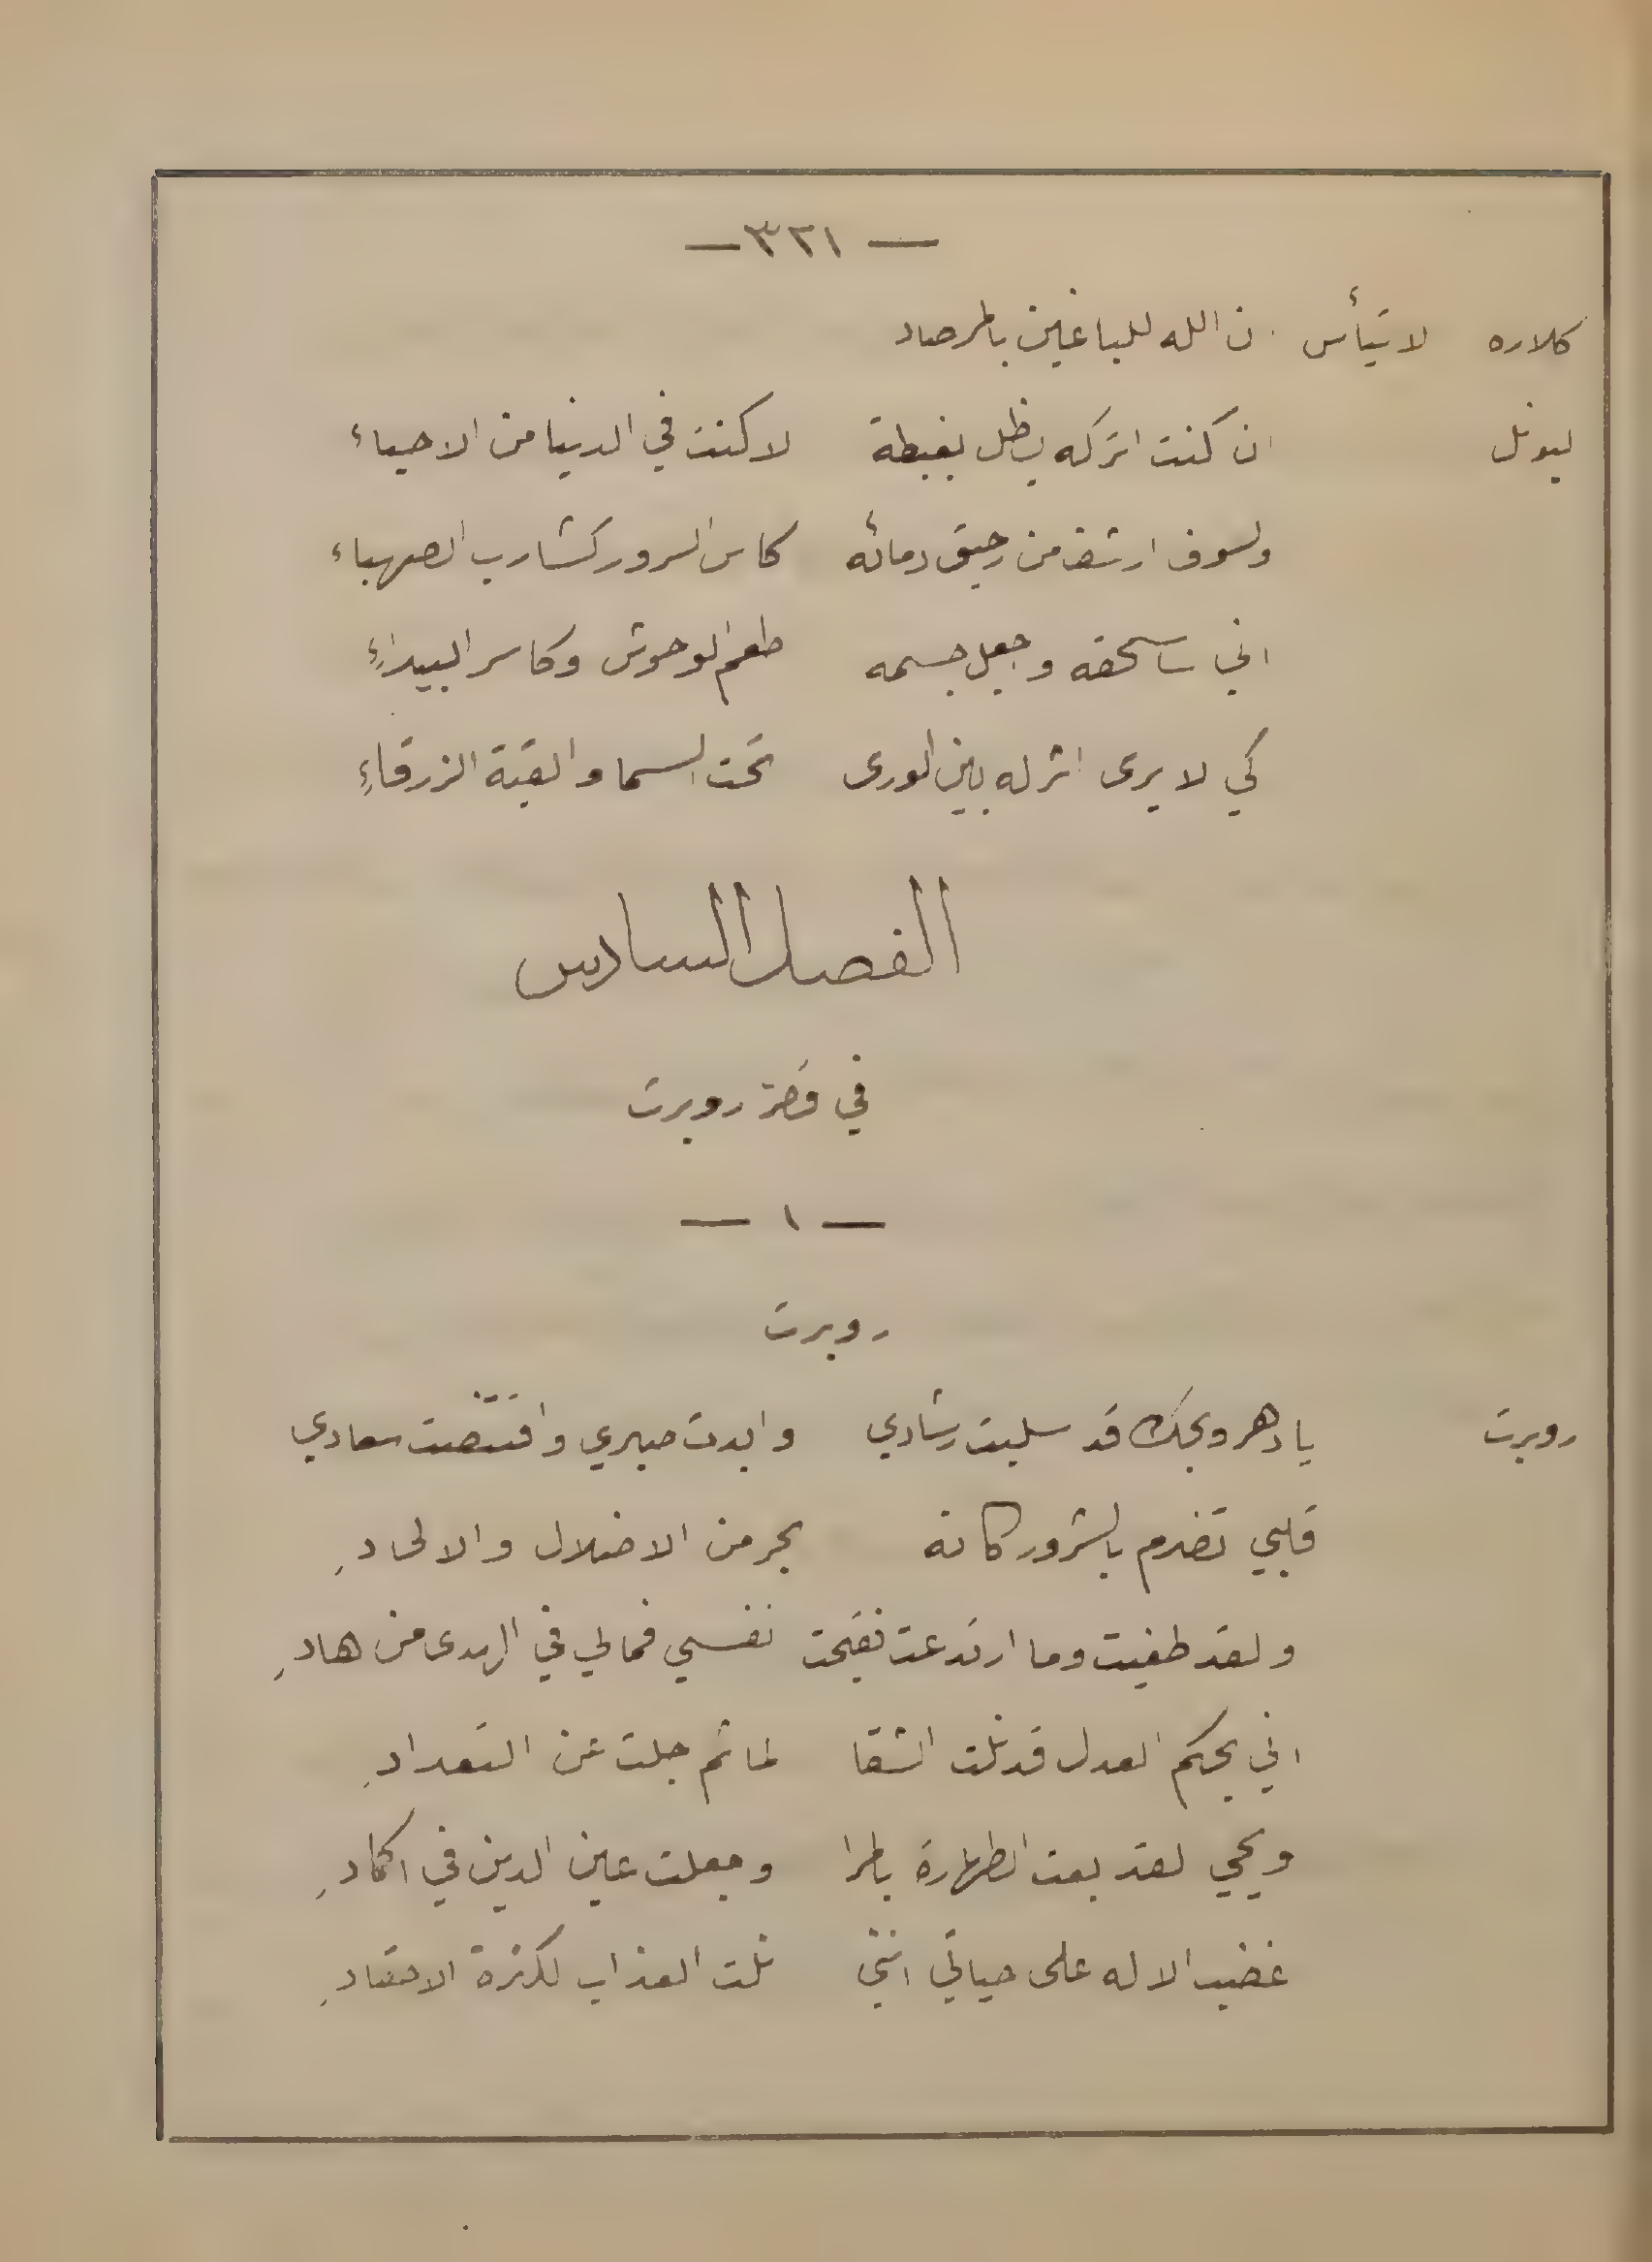 — ٣٢١ —
كلاره لا تيأس ن الله للباغين بالمرصاد
ليونل ان كنت اتركه يظل بغبطة لا كنت في الدنيا من الاحياء
ولسوف ارتشف من رحيق دمائه كاس السرور كشارب الصهباء
اني ساسحقه وجعل جسمه طعم الوحوش وكاسر البيداءِ
كي لا يرى اثر له بين الورى تحت السما والقبة الزرقاءِ
الفصل السادس
في قصر روبرت
— ١ —
روبرت
روبرت يا دهر ويحك قد سلبت رشادي وابدت صبري واقتنصت سعادي
قلبي تضرم بالشرور كانه بحر من الاضلال والالحادِ
ولقد طغيت وما ارتدعت فقبحت نفسي فمالي في الهدى من هادِ
اني بحكم العدل قد نلت الشقا لماثم جلت عن التعدادِ
ويحي لقد بعت الطهارة بالمرا وجعلت عين الدين في اكمادِ
غضب الاله على حياتي انني نلت العذاب لكثرة الاحقادِ